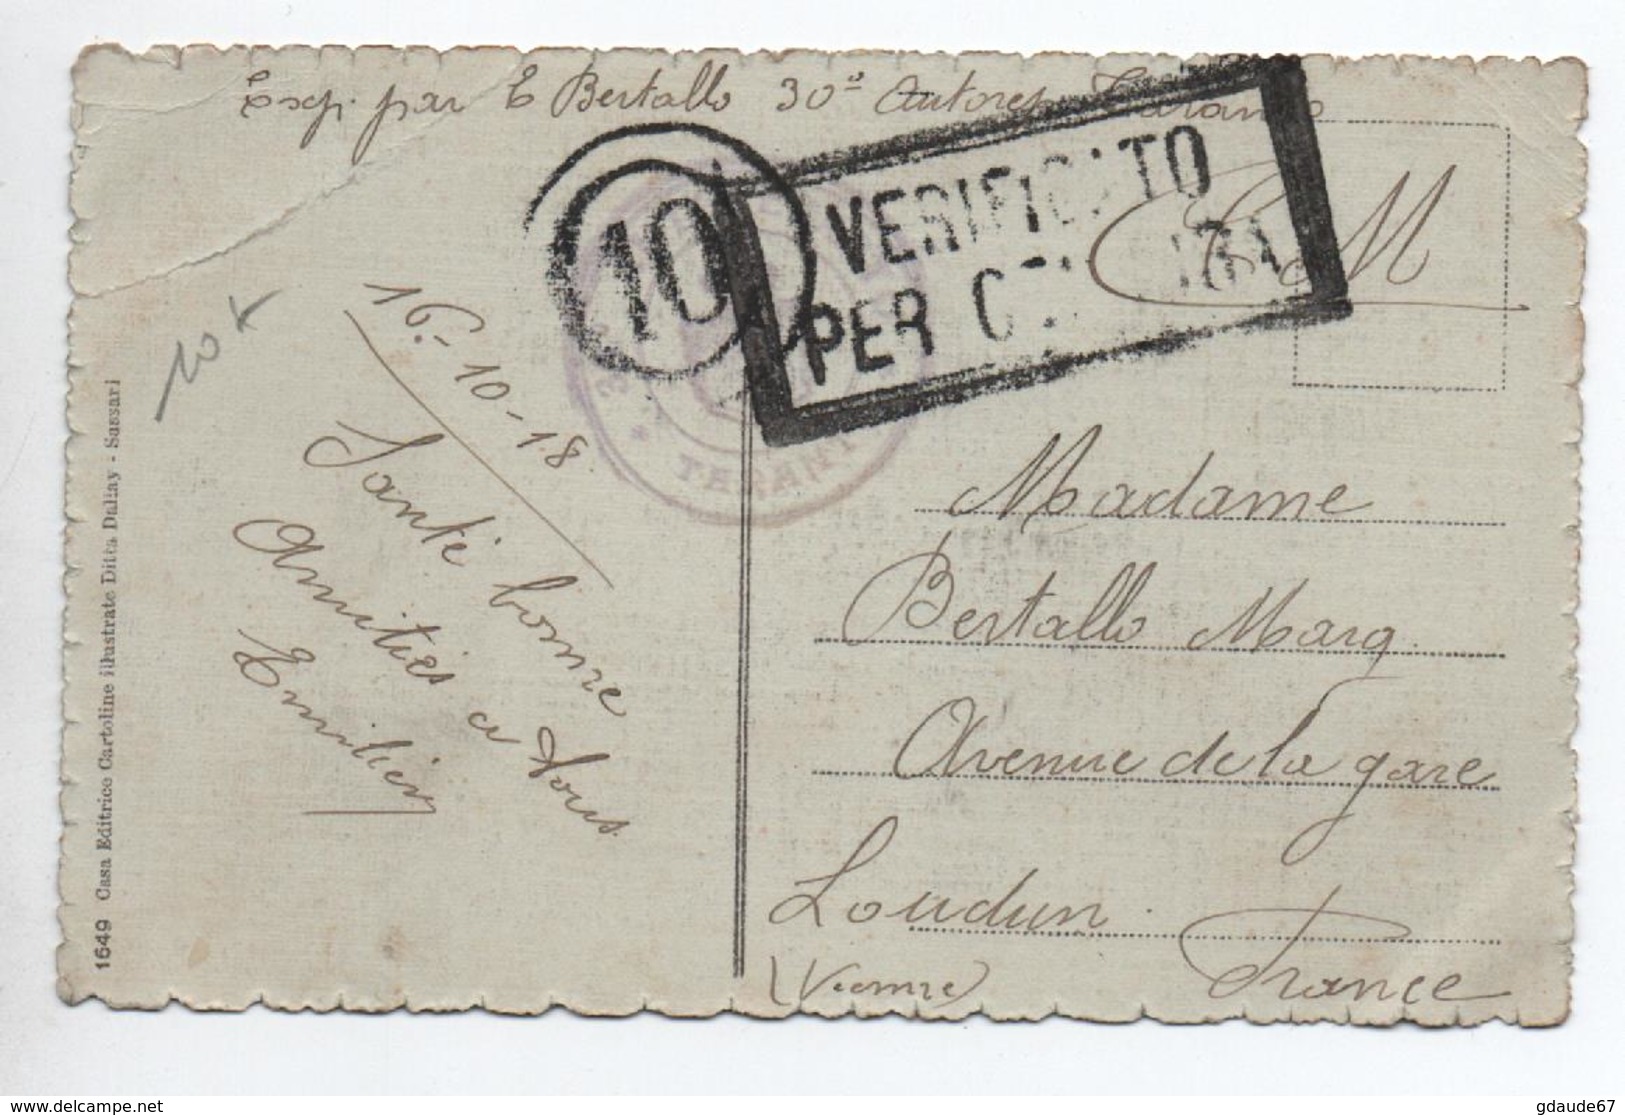 Exp. par E Bertallo 30e Autores Tarante
10
VERIFICATO
PER CENSURA
F M
10 x
16-10-18
Santé bonne
Amitiés a tous
Emilien
TARANT
Madame
Bertallo Marg.
Avenue de la gare
Loudun.
(Vienne) France
1649 Casa Editrice Cartoline illustrate Ditta Dallay - Sassari
delcampe.net
gdaude67